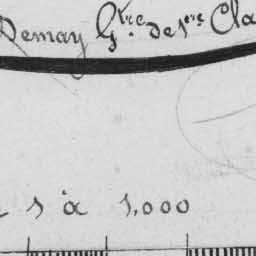 Demay Gtre de 1ere Cla
1 à 1,000